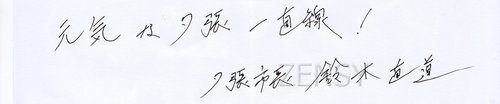 元気な夕張一直線！
夕張市長 鈴木直道
ZENSY